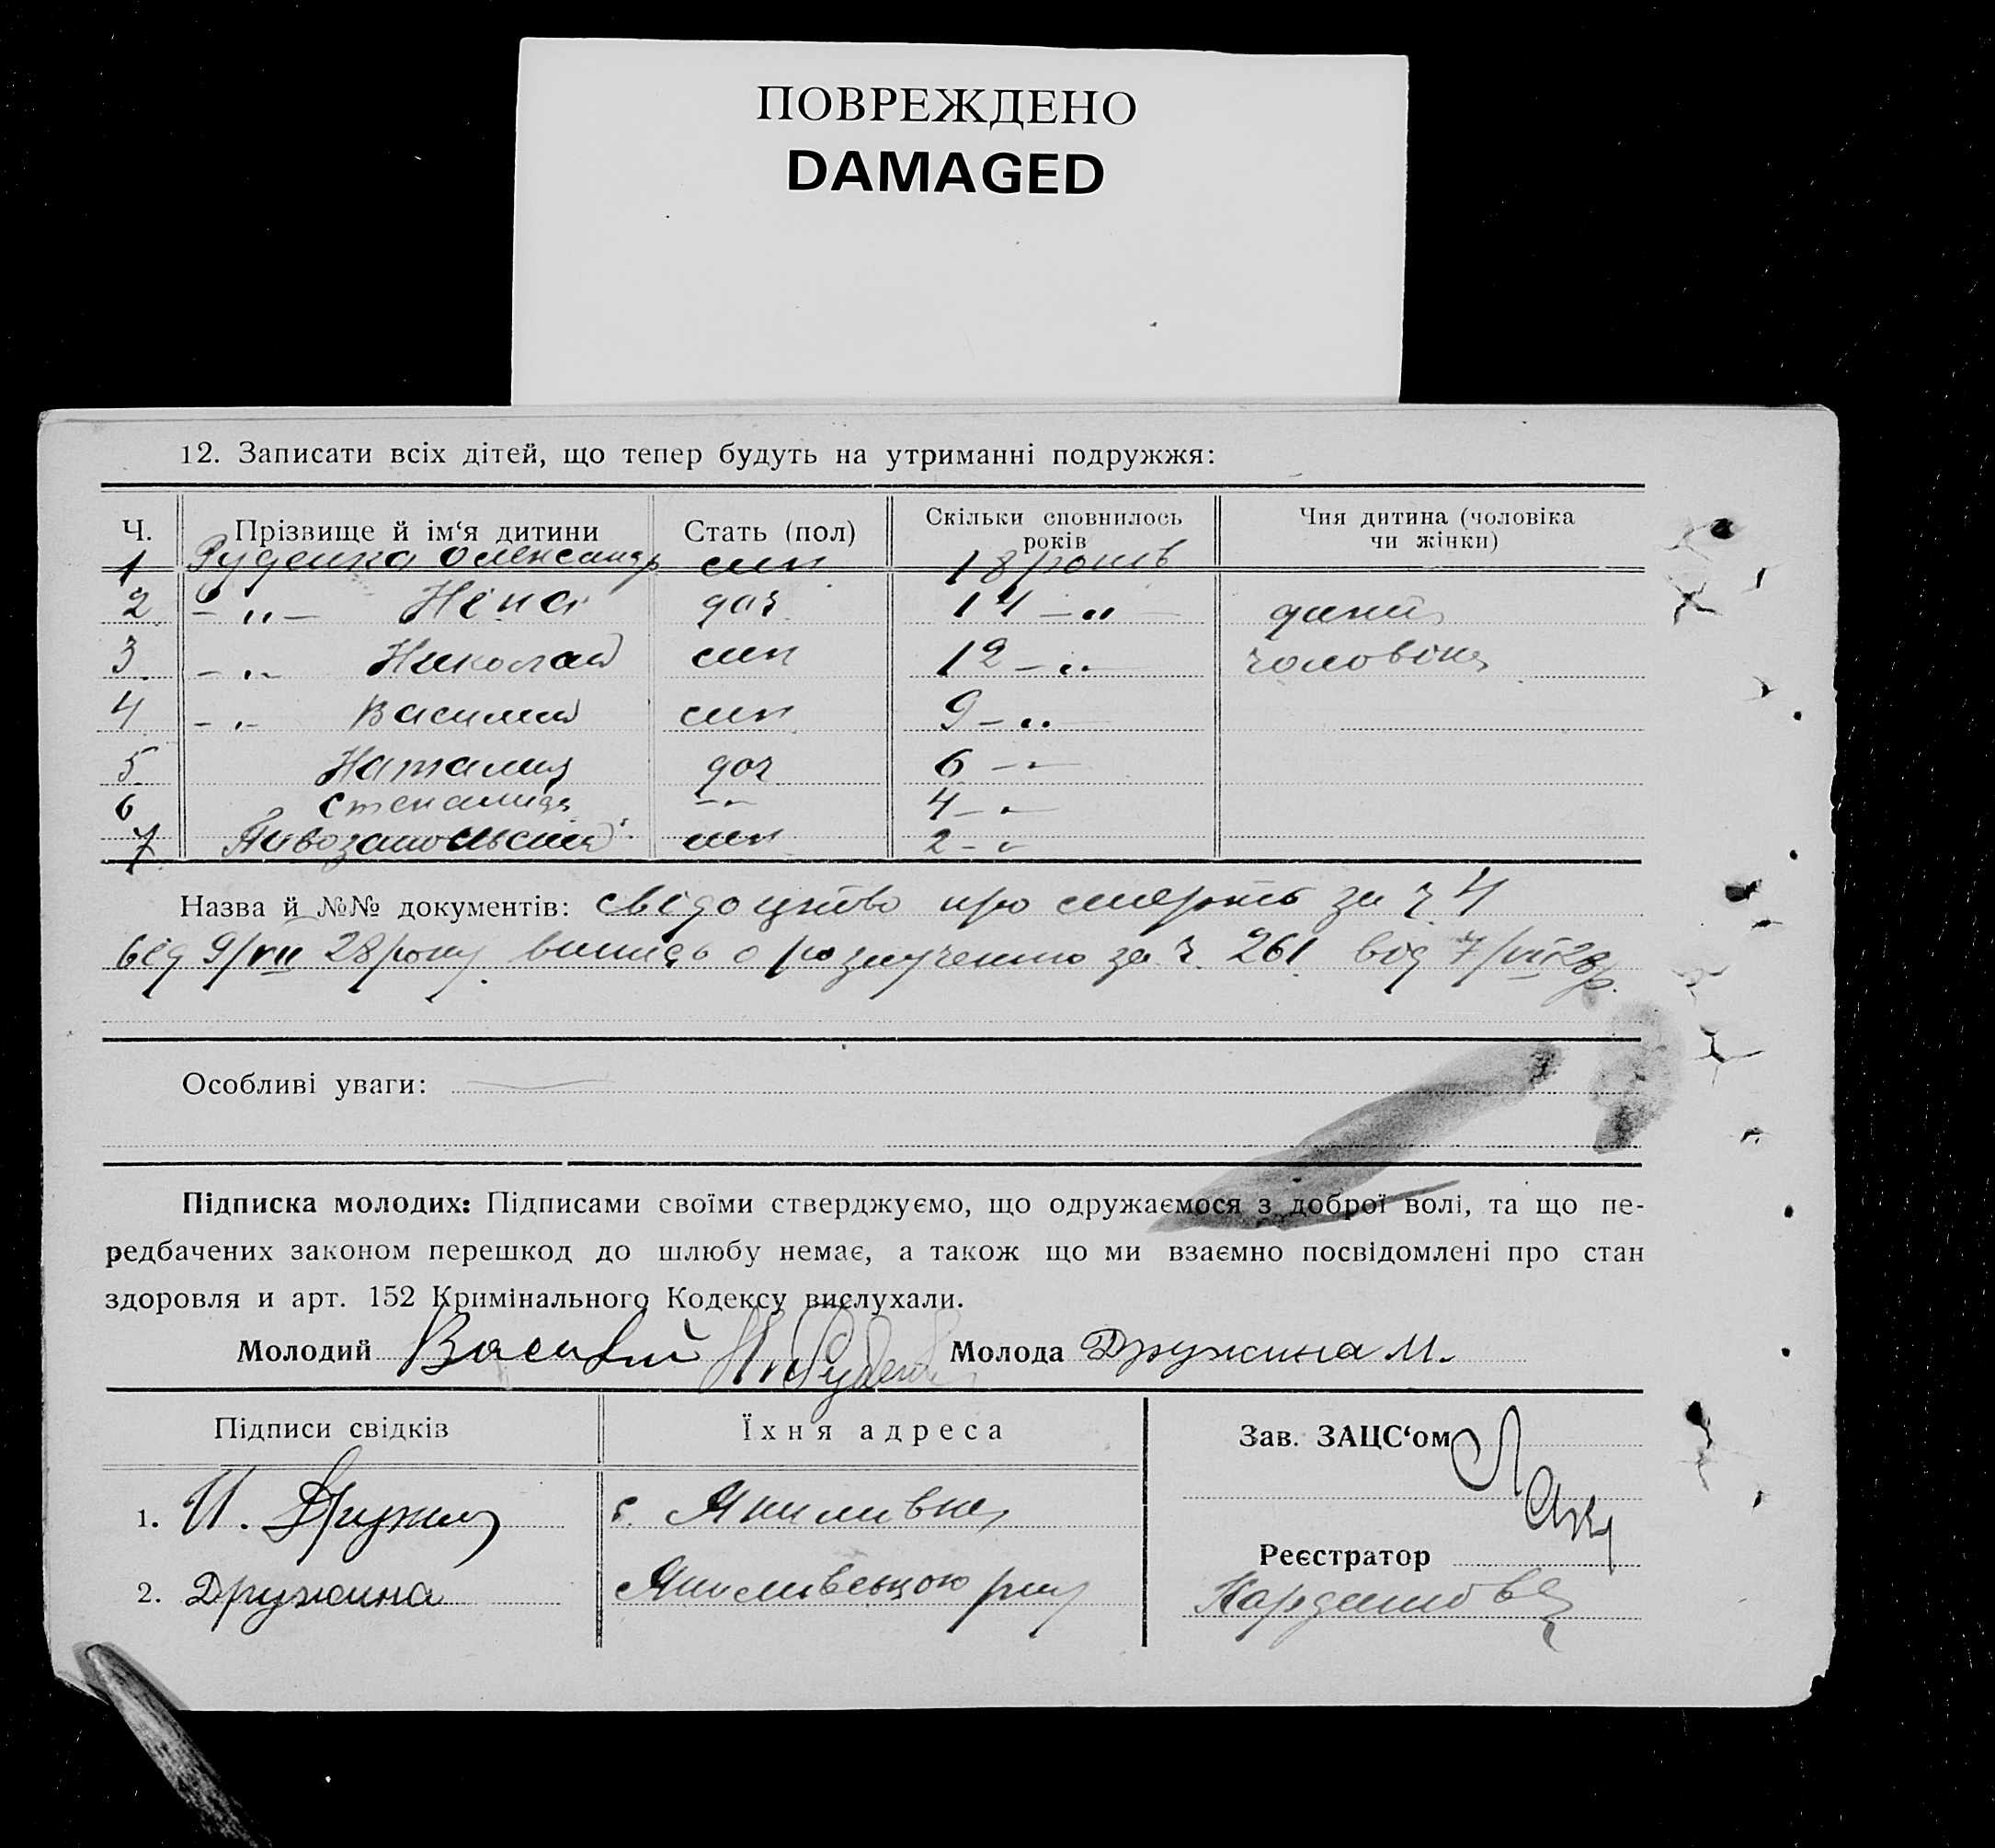 ПОВРЕЖДЕНО
DAMAGED
12. Записати всіх дітей, що тепер будуть на утриманні подружжя:
Ч. Прізвище й ім‘я дитини Стать (пол) Скільки сповнилось років Чия дитина (чоловіка чи жінки)
1 Руденко Олександр син 18 років
2 – „ – Ніна доч 14 – „ –
3 – „ Николай син 12 – „ чоловіка
4 – „ – Василий син 9 – „
5 Наталия доч 6 – „
6 Степанида – „ 4 – „
7 син 2 – „
Назва й №№ документів: свідоцтво про смерть за ч 4
від 9/VII 28 року. за ч. 261 від 7/VII 28 р.
Особливі уваги:
Підписка молодих: Підписами своїми стверджуємо, що одружаємося з доброї волі, та що пе-
редбачених законом перешкод до шлюбу немає, а також що ми взаємно посвідомлені про стан
здоровля и арт. 152 Кримінального Кодексу вислухали.
Молодий Василий Руденко Молода Дружина М.
Підписи свідків Їхня адреса Зав. ЗАЦС‘ом
1. И. Дружина с. Якимівка
Реєстратор
2. Дружина